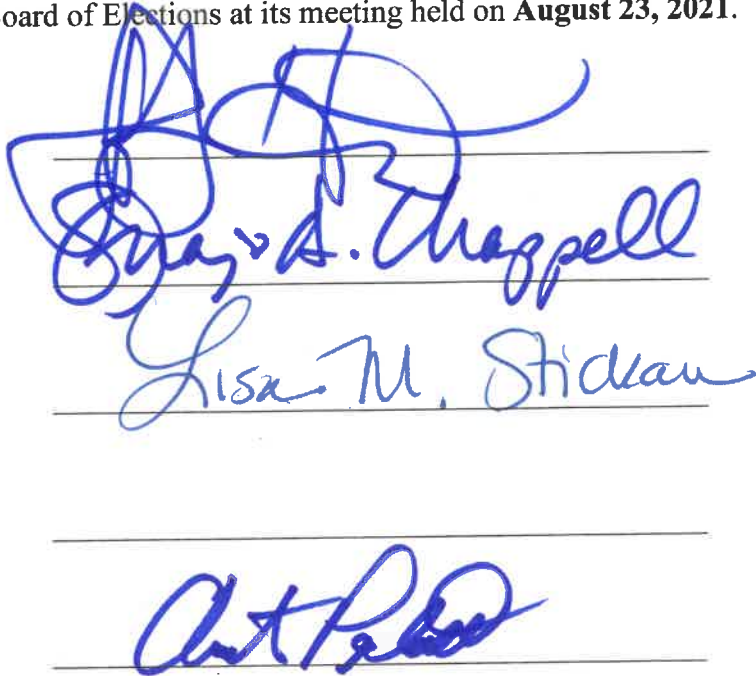 oard of Elections at its meeting held on August 23, 2021.
Inajo D. Chappell
Lisa M. Stickan